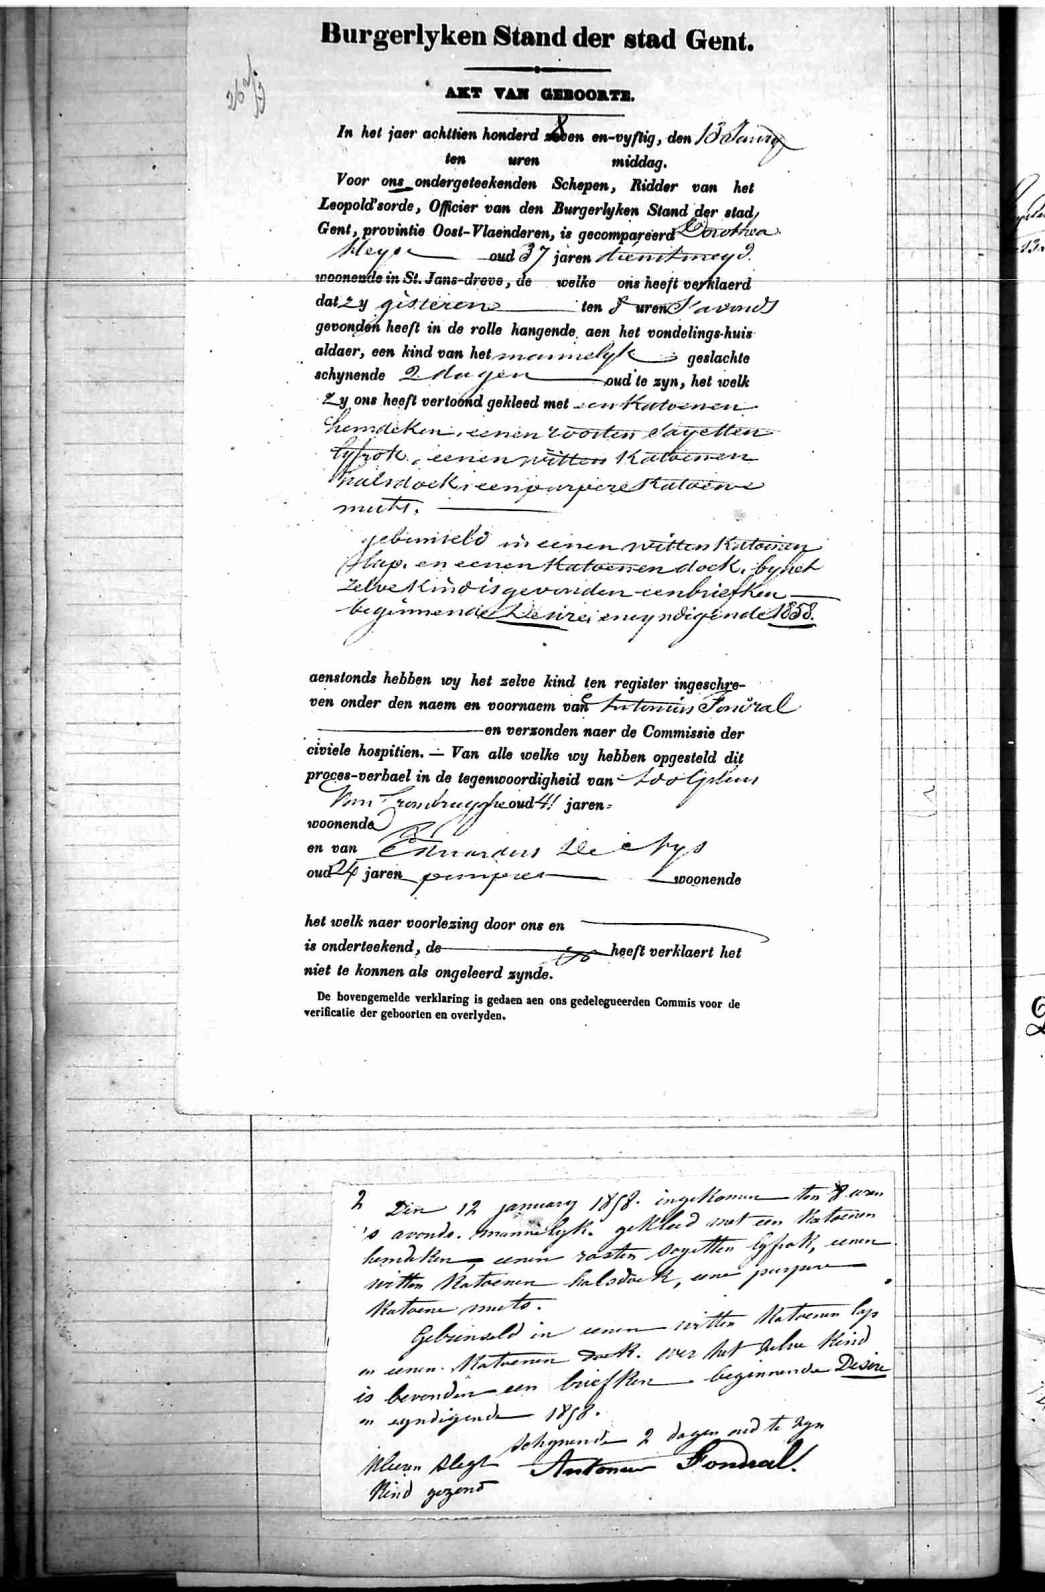 Burgerlyken Stand der stad Gent.
AKT VAN GEBOORTE.
In het jaer achttien honderd 8 en-vyftig, den 13 January
ten uren middag.
Voor ons ondergeteekenden Schepen, Ridder van het
Leopold'sorde, Officier van den Burgerlyken Stand der stad
Gent, provintie Oost-Vlaenderen, is gecompareerd Dorothea
oud 37 jaren dienstmeyd
woonende in St. Jans-dreve, de welke ons heeft verklaerd
dat zy gisteren ten 8 uren s'avonds
gevonden heeft in de rolle hangende aen het vondelings-huis
aldaer, een kind van het mannelyk geslachte
schynende 2 dagen oud te zyn, het welk
zy ons heeft vertoond gekleed met een Katoenen
hemdeken, eenen rooden sayetten
lyfrok, eenen witten Katoenen
halsdoek, een purpere Katoene
muts.
gebunseld in eenen witten Katoenen
slap, en eenen Katoenen doek, by het
zelve Kind is gevonden een briefken
beginnende Desire en eyndigende 1858.
aenstonds hebben wy het zelve kind ten register ingeschre-
ven onder den naem en voornaem van Antonius Fondral
en verzonden naer de Commissie der
civiele hospitien. — Van alle welke wy hebben opgesteld dit
proces-verbael in de tegenwoordigheid van Adolphus
Van oud 41 jaren
woonende
en van Eduardus De Nys
oud 24 jaren pompier woonende
het welk naer voorlezing door ons en
is onderteekend, de heeft verklaert het
niet te konnen als ongeleerd zynde.
De bovengemelde verklaring is gedaen aen ons gedelegueerden Commis voor de
verificatie der geboorten en overlyden.
2 Den 12 january 1858. ingekomen ten 8 uren
's avonds. mannelyk. gekleed met een Katoenen
hemdeken, eenen rooden sayetten lyfrok, eenen
witten Katoenen halsdoek, eene purpere
Katoene muts.
Gebunseld in eenen witten Katoenen lap
en eenen Katoenen doek. over het zelve Kind
is bevonden een briefken beginnende Desire
en eyndigende 1858.
schynende 2 dagen oud te zyn
Kleeren slegt Antonius Fondral.
Kind gezond